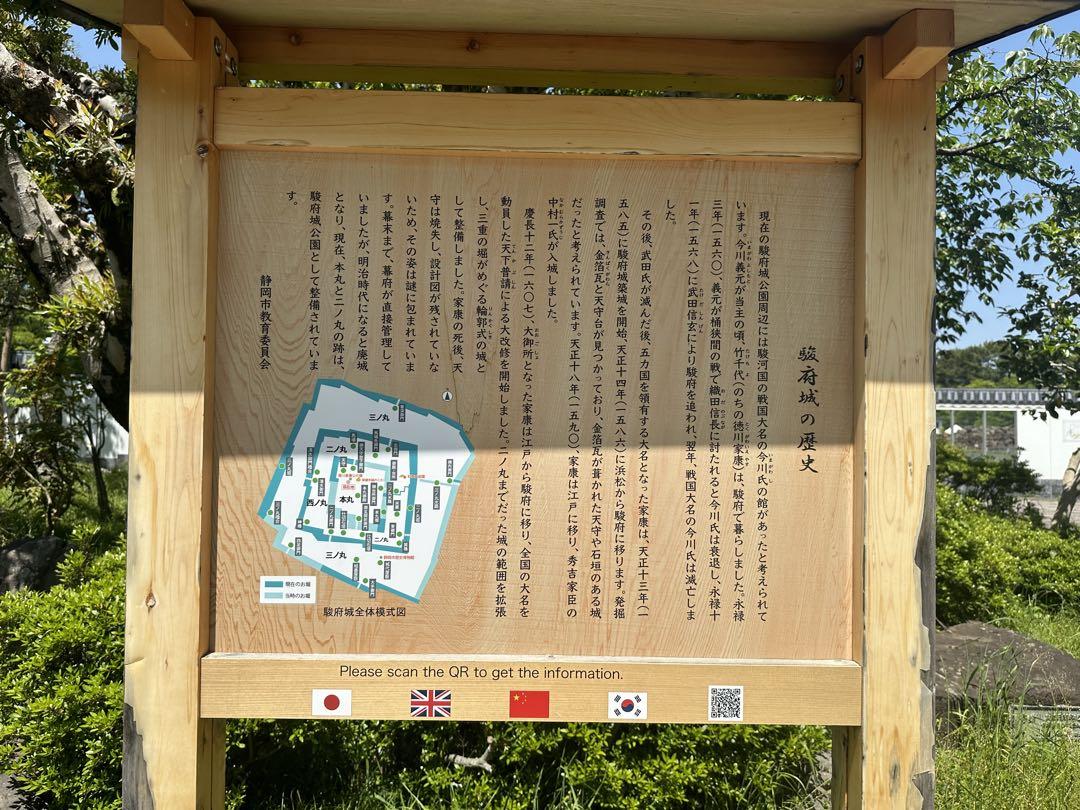 駿府城の歴史
現在の駿府城公園周辺には駿河国の戦国大名の今川氏の館があったと考えられて
います。今川義元が当主の頃、竹千代(のちの徳川家康)は、駿府で暮らしました。永禄
三年(一五六〇)、義元が桶狭間の戦で織田信長に討たれると今川氏は衰退し、永禄十
一年(一五六八)に武田信玄により駿府を追われ、翌年、戦国大名の今川氏は滅亡しま
した。
その後、武田氏が滅んだ後、五カ国を領有する大名となった家康は、天正十三年(一
五八五)に駿府城築城を開始、天正十四年(一五八六)に浜松から駿府に移ります。発掘
調査では、金箔瓦と天守台が見つかっており、金箔瓦が葺かれた天守や石垣のある城
だったと考えられています。天正十八年(一五九〇)、家康は江戸に移り、秀吉家臣の
中村一氏が入城しました。
慶長十二年(一六〇七)、大御所となった家康は江戸から駿府に移り、全国の大名を
動員した天下普請による大改修を開始しました。二ノ丸までだった城の範囲を拡張
し、三重の堀がめぐる輪郭式の城と
して整備しました。家康の死後、天
守は焼失し、設計図が残されていな
いため、その姿は謎に包まれていま
す。幕末まで、幕府が直接管理して
いましたが、明治時代になると廃城
となり、現在、本丸と二ノ丸の跡は、
駿府城公園として整備されていま
す。
静岡市教育委員会
三ノ丸
二ノ丸
本丸
西ノ丸
二ノ丸
三ノ丸
現在のお堀
当時のお堀
駿府城全体模式図
Please scan the QR to get the information.